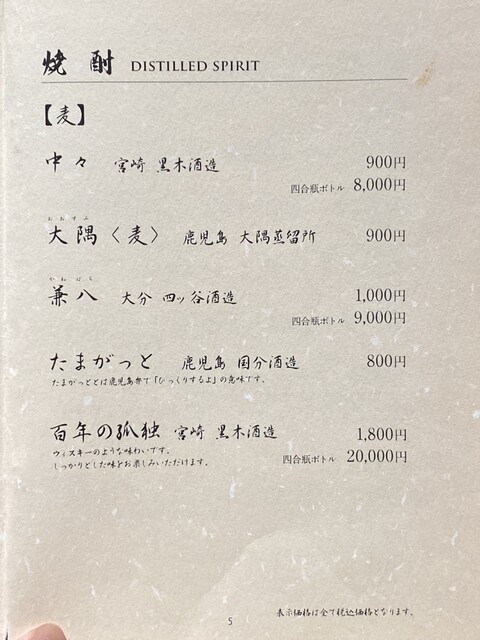 焼酎 DISTILLED SPIRIT
【麦】
中々 宮崎 黒木酒造 900円
四合瓶ボトル 8,000円
おおすみ
大隅〈麦〉 鹿児島 大隅蒸留所 900円
かねはち
兼八 大分 四ッ谷酒造 1,000円
四合瓶ボトル 9,000円
たまがっと 鹿児島 国分酒造 800円
たまがっととは鹿児島弁で「びっくりするよ」の意味です。
百年の孤独 宮崎 黒木酒造 1,800円
ウィスキーのような味わいです。
しっかりとした味をお楽しみいただけます。
四合瓶ボトル 20,000円
表示価格は全て税込価格となります。
5